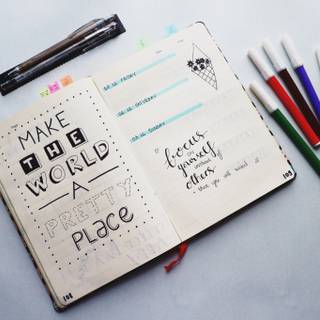 MAKE
THE
WORLD
A
PRETTY
PLACE
108
focus
on
yourself
instead of
others
that you will need it
109